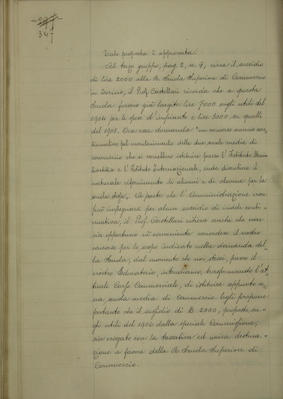 Tale proposta è approvata.
Al terzo gruppo, pag. 2, n. 4, circa il sussidio
di lire 2000 alla R. Scuola Superiore di Commercio
in Torino, il Prof. Castellari ricorda che a questa
Scuola furono già largite lire 7000 sugli utili del
1904 per le spese d'impianto e lire 3000 su quelli
del 1905. Ora essa domanda "un concorso annuo con-
tinuativo pel mantenimento delle due scuole medie di
commercio che si vorrebbero istituire presso l'Istituto
e l'Istituto Internazionale, onde divenire il
naturale rifornimento di alunni e di alunne per la
scuola stessa". Ciò posto che l'Amministrazione non
può impegnarsi per alcun sussidio di indole conti-
nuativa, il Prof. Castellari ritiene anche che non sia
opportuno incominciare a concedere il nostro
concorso per lo scopo indicato nella domanda del-
la Scuola, dal momento che noi stessi, presso il
nostro Educatorio, intendiamo, trasformando l'at-
tuale Corso Commerciale, di istituire appunto u-
na scuola media di Commercio. Egli propone
pertanto che il sussidio di L. 2000, proposto su-
gli utili del 1906 dalla speciale Commissione,
sia erogato con la tassativa ed unica destina-
zione a favore della R. Scuola Superiore di
Commercio.